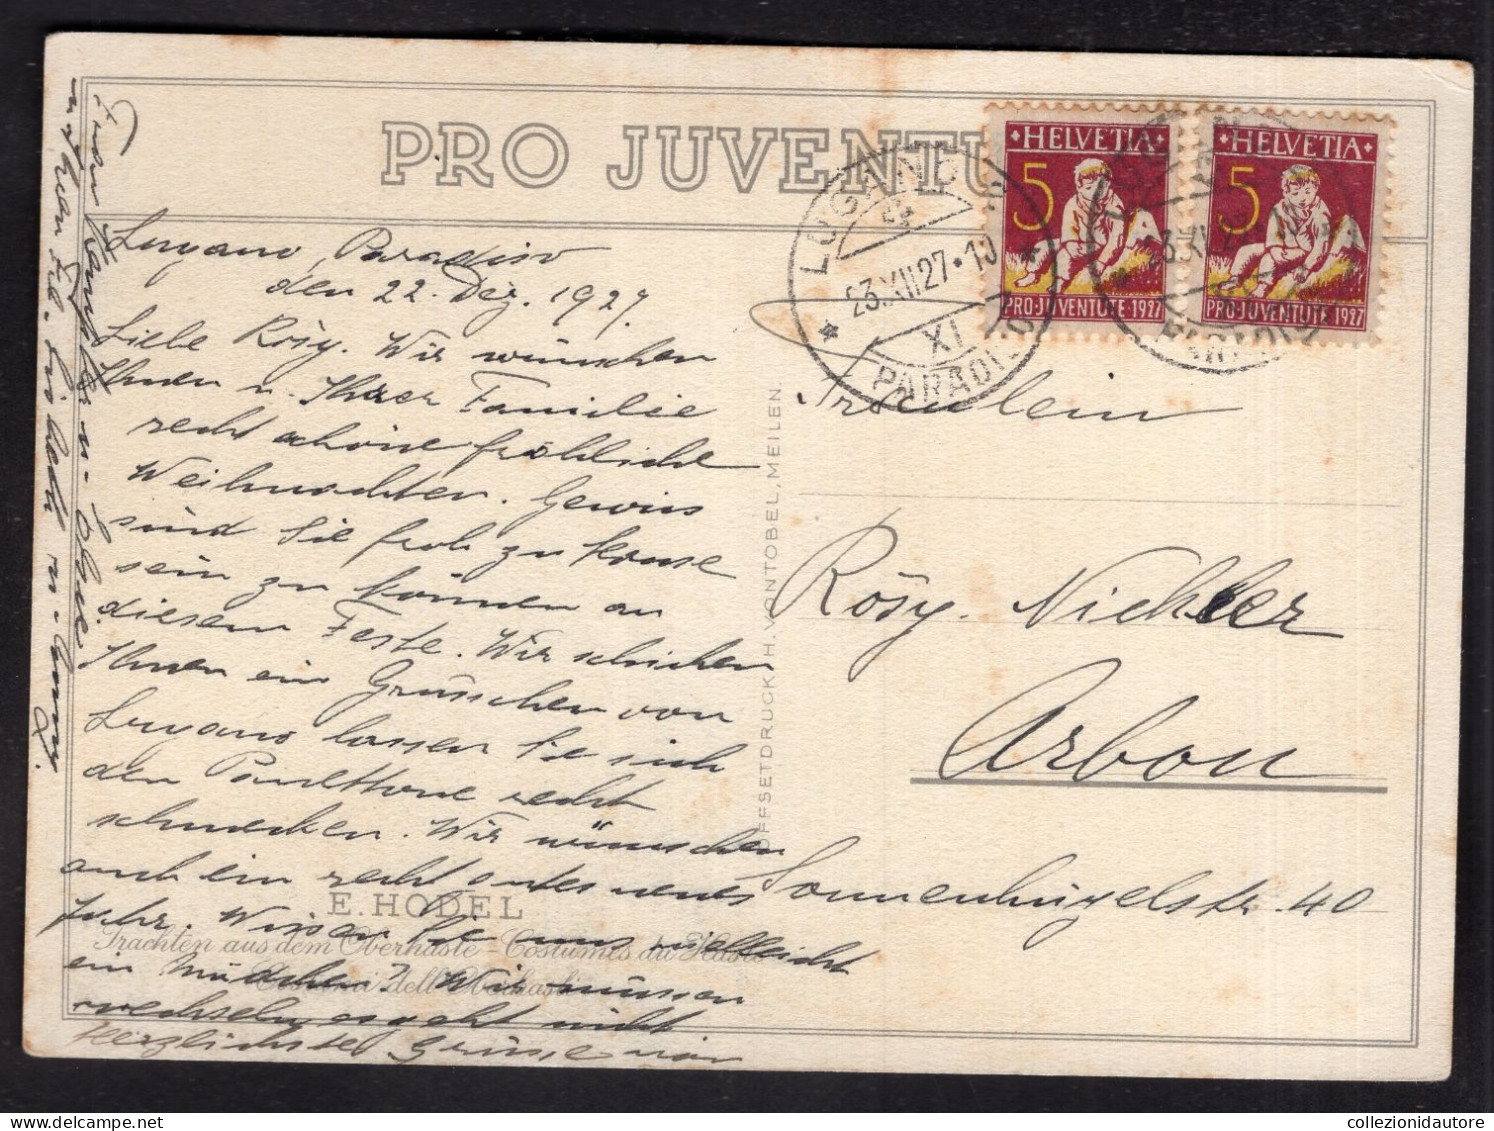 PRO JUVENTU
HELVETIA
5
PRO-JUVENTUTE 1927
HELVETIA
5
PRO-JUVENTUTE 1927
LUGANO
23.XII.27.10
XI
PARADISO
Lugano, Paradiso
den 22. Dez. 1927.
Liebe Rösy. Wir wünschen
Ihnen u. Ihrer Familie
recht schöne fröhliche
Weihnachten. Gewiss
sind Sie froh zu Hause
sein zu können an
diesem Feste. Wir schicken
Ihnen ein Grüsschen von
Lugano lassen Sie sich
den Panettone recht
schmecken. Wir wünschen
auch ein recht gutes neues
Jahr. Wissen Sie uns vielleicht
ein Mädchen? Wir müssen
wechseln, es geht nicht
Herzlichste Grüsse von
Fräulein
Rösy. Nichler
Arbon
Sonnenhügelstr. 40
OFFSETDRUCK H. VONTOBEL, MEILEN.
E. HODEL
Trachten aus dem Oberhasle - Costumes du Hasli
Costumi dell'Oberhasli
collezionidautore.com